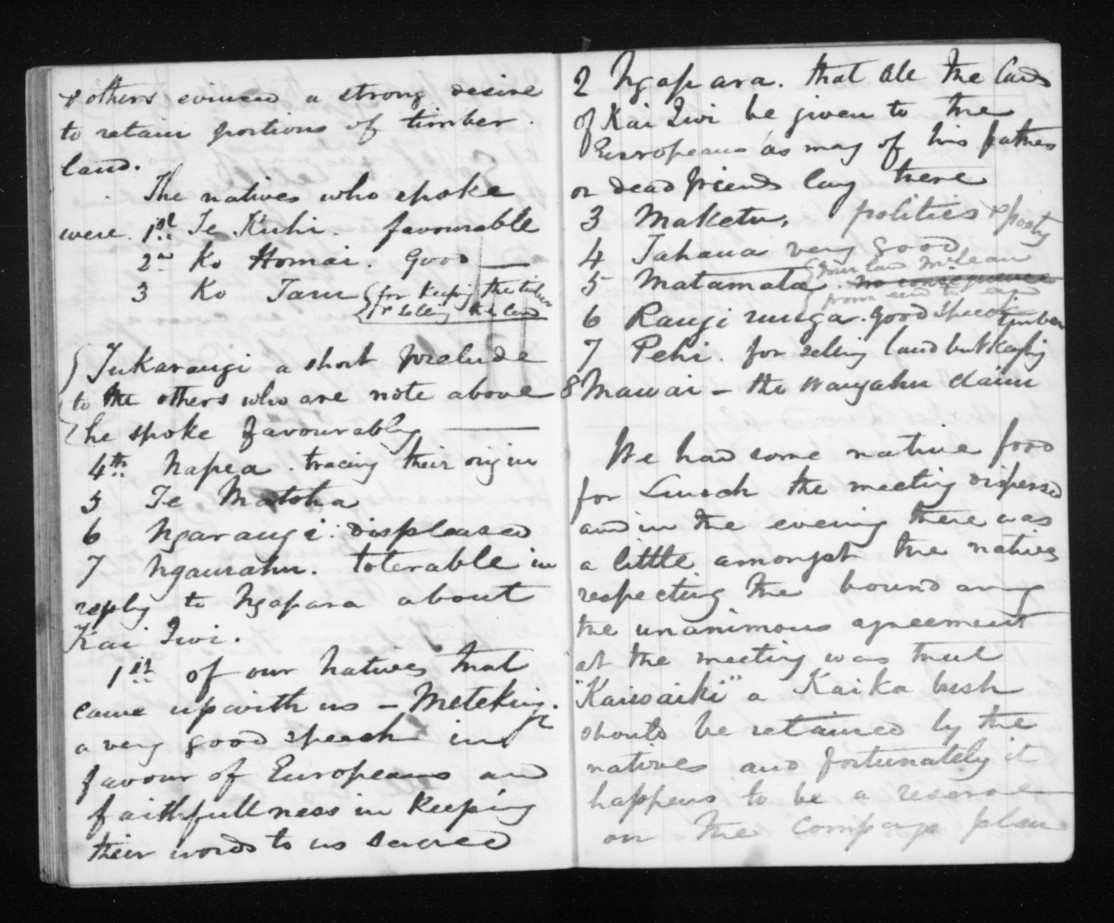 & others evinced a strong desire
to retain portions of timber
land.
The natives who spoke
were. 1st Te Kuhi. favourable
2nd Ko Homai. Good —
3 Ko Taru for keeping the timber
& selling the land
Tukarangi a short prelude
to the others who are note above
he spoke favourably —
4th Napea. tracing their origin
5 Te Matoha
6 Ngarangi. displeased
7 Ngaurahu. tolerable in
reply to Ngapara about
Kai Iwi.
1st of our Natives that
came up with us — Metekingi.
a very good speech in
favour of Europeans and
faithfullness in keeping
their words to us sacred
2 Ngapara. that all the land
of Kai Iwi be given to the
Europeans as may of his fathers
or dead friends lay there
3 Maketu, politics & party
4 Tahana very good
5 Matamata. no consequence
your land McLean
from end to end
6 Rangi runga. good speech
7 Pehi. for selling land but keeping timber
8 Mawai — the claim
We had some native food
for Lunch the meeting dispersed
and in the evening there was
a little amongst the natives
respecting the boundary
the unanimous agreement
at the meeting was that
a Kaika bush
should be retained by the
natives and fortunately it
happens to be a reserve
on the plan